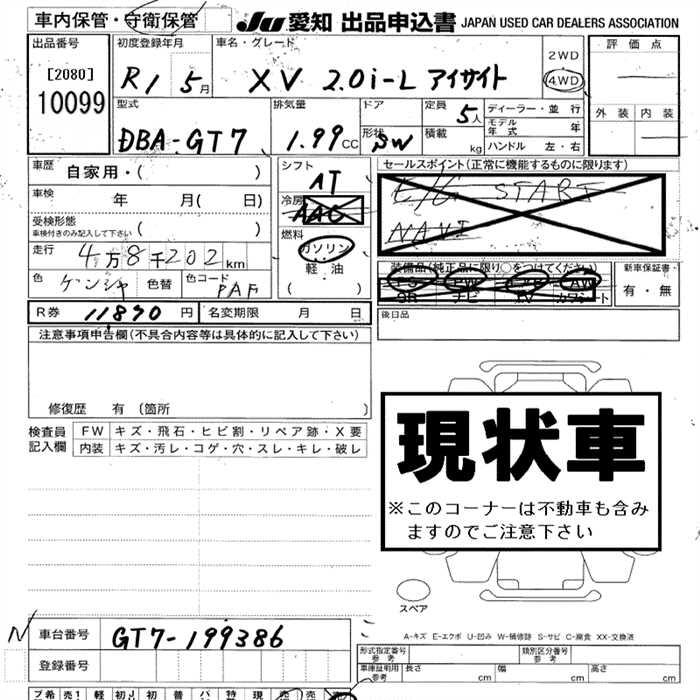 車内保管・守衛保管 JU 愛知 出品申込書 JAPAN USED CAR DEALERS ASSOCIATION
出品番号 初度登録年月 車名・グレード 2WD 評価点
[2080] R1 5月 XV 2.0i-L アイサイト 4WD
10099 型式 排気量 ドア 定員 5人 ディーラー・並行 外装 内装
DBA-GT7 1.99CC 形状 SW 積載 kg モデル年式 年
ハンドル 左・右
車歴 自家用・( ) シフト AT セールスポイント(正常に機能するものに限ります)
車検 年 月( 日) 冷房 AAC E/G START
受検形態 ( )
車検付きのみ記入して下さい
燃料 ガソリン NAVI
走行 4万8千202km 軽油 装備品(純正品に限り○をつけてください) 新車保証書
色 ゲンシャ 色替 色コード PAF ( ) PS PW AW 有・無
SR ナビ TV カワシート
R券 11870円 名変期限 月 日 後日品
注意事項申告欄(不具合内容等は具体的に記入して下さい)
修復歴 有 (箇所 )
検査員記入欄 FW キズ・飛石・ヒビ割・リペア跡・X要
内装 キズ・汚レ・コゲ・穴・スレ・キレ・破レ
現状車
※このコーナーは不動車も含み
ますのでご注意下さい
スペア
A-キズ E-エクボ U-凹み W-補修跡 S-サビ C-腐食 XX-交換済
N 車台番号 GT7-199386
登録番号
形式指定番号 参考 類別区分番号 参考
車庫証明用 参考 長さ cm 幅 cm 高さ cm